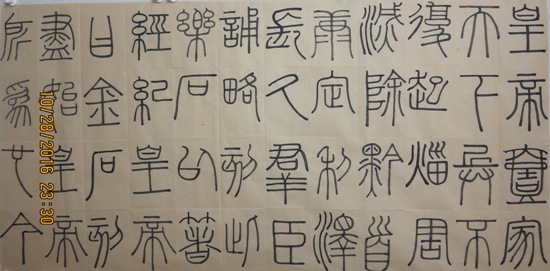 皇帝壹家
天下兵不
復起災害
滅除黔首
康定利澤
長久群臣
誦略刻此
樂石以著
經紀皇帝
曰金石刻
盡始皇帝
所為也今
10/28/2016 23:30